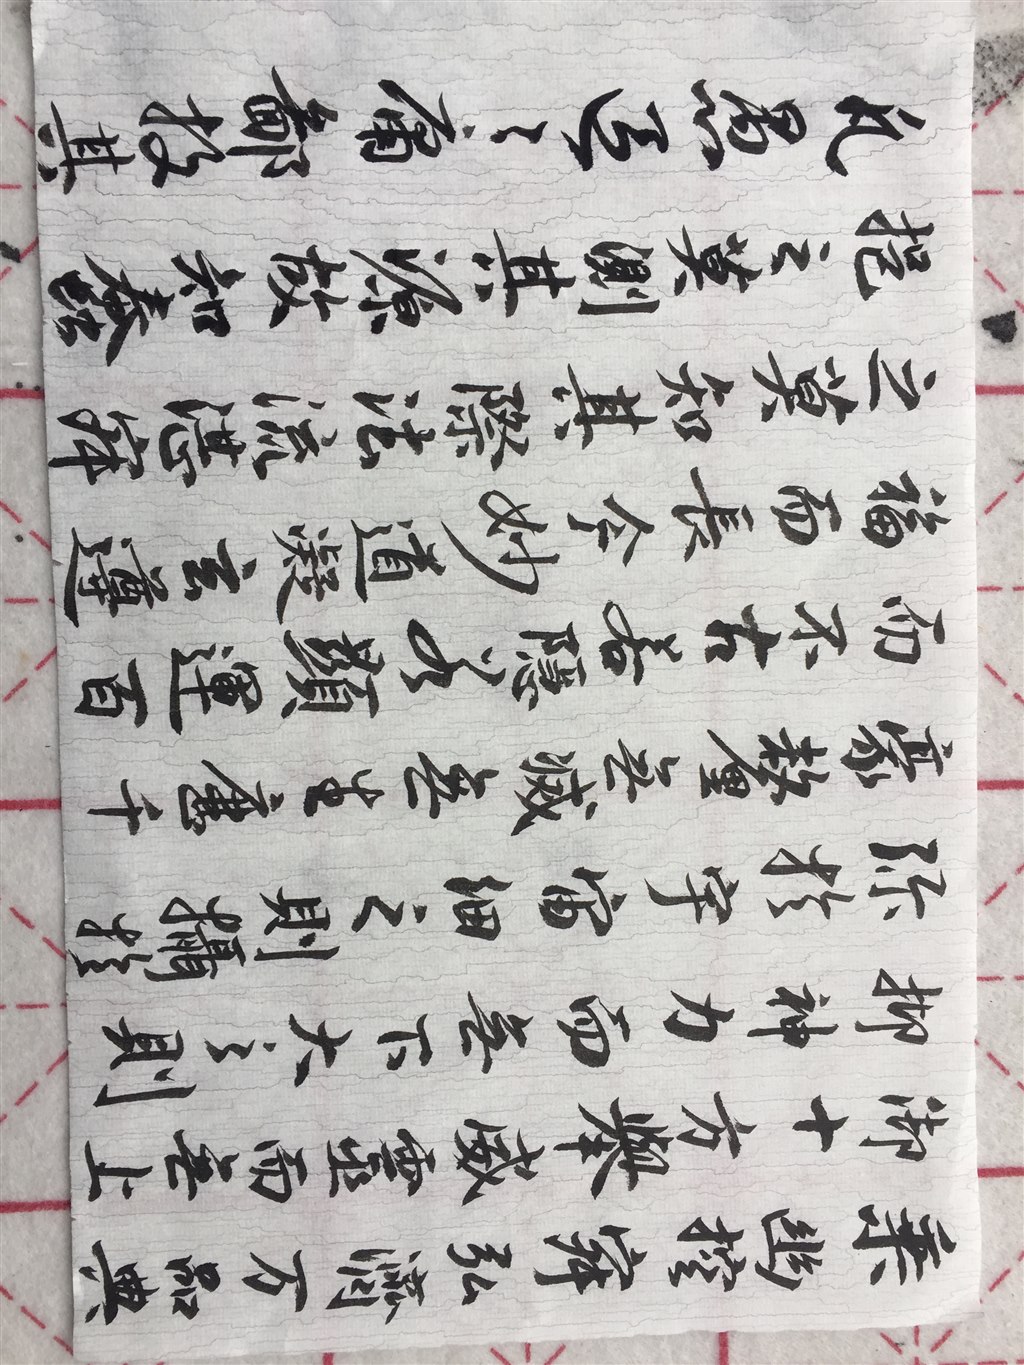 乘幽控寂弘濟万品典
御十方舉威靈而無上
抑神力而無下大之則
弥於宇宙細之則攝於
豪釐無滅無生歷千
而不古若隱若顯運百
福而長今妙道凝玄遵
之莫知其際法流湛寂
挹之莫測其源故知蠢
凡愚區々庸鄙投其